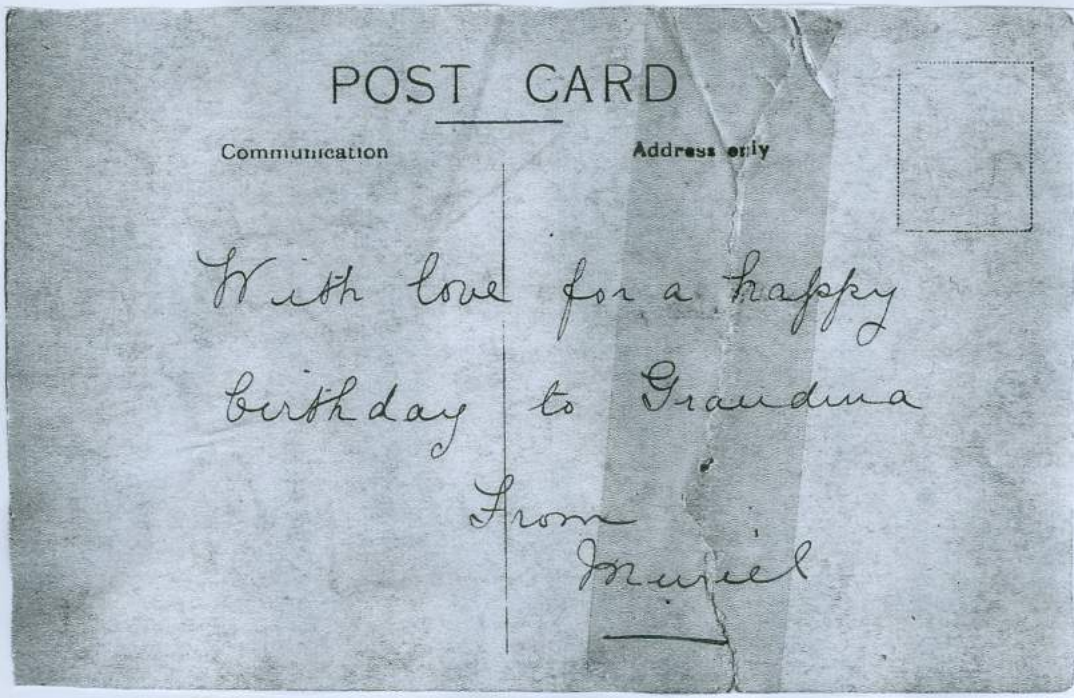 POST CARD
Communication
Address only
With love for a happy
birthday to Grandma
From
Muriel